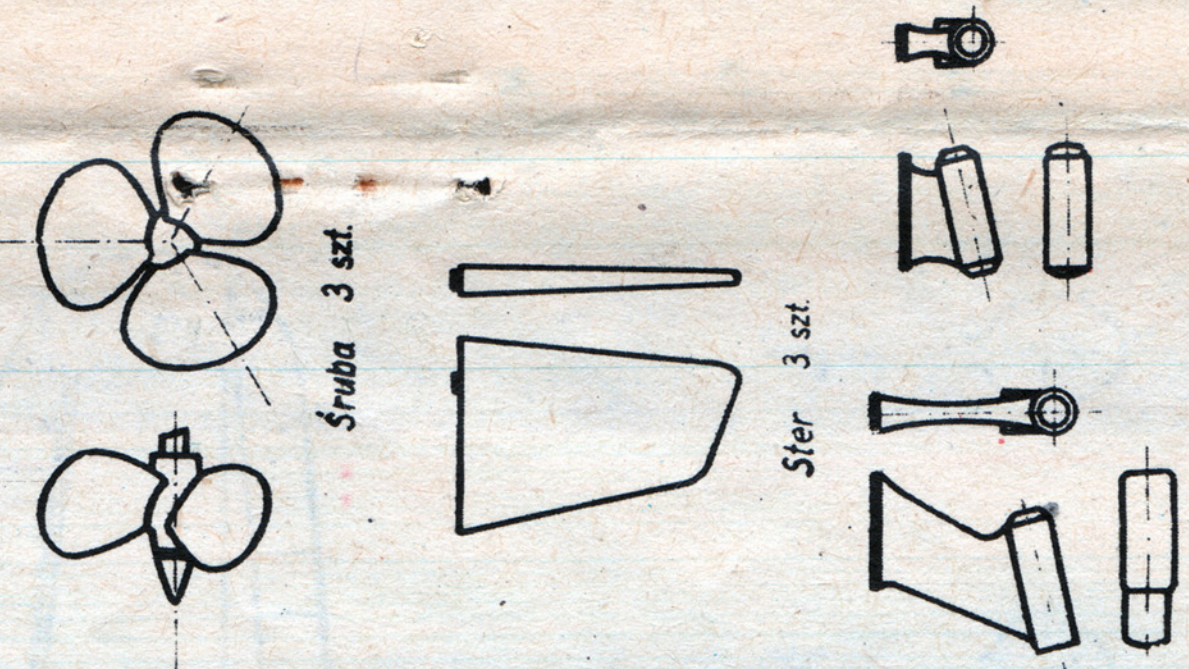 Śruba 3 szt.
Ster 3 szt.